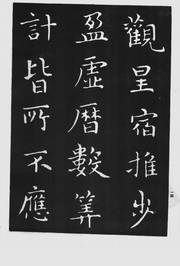 觀星宿推步
盈虛曆數筭
計皆所不應